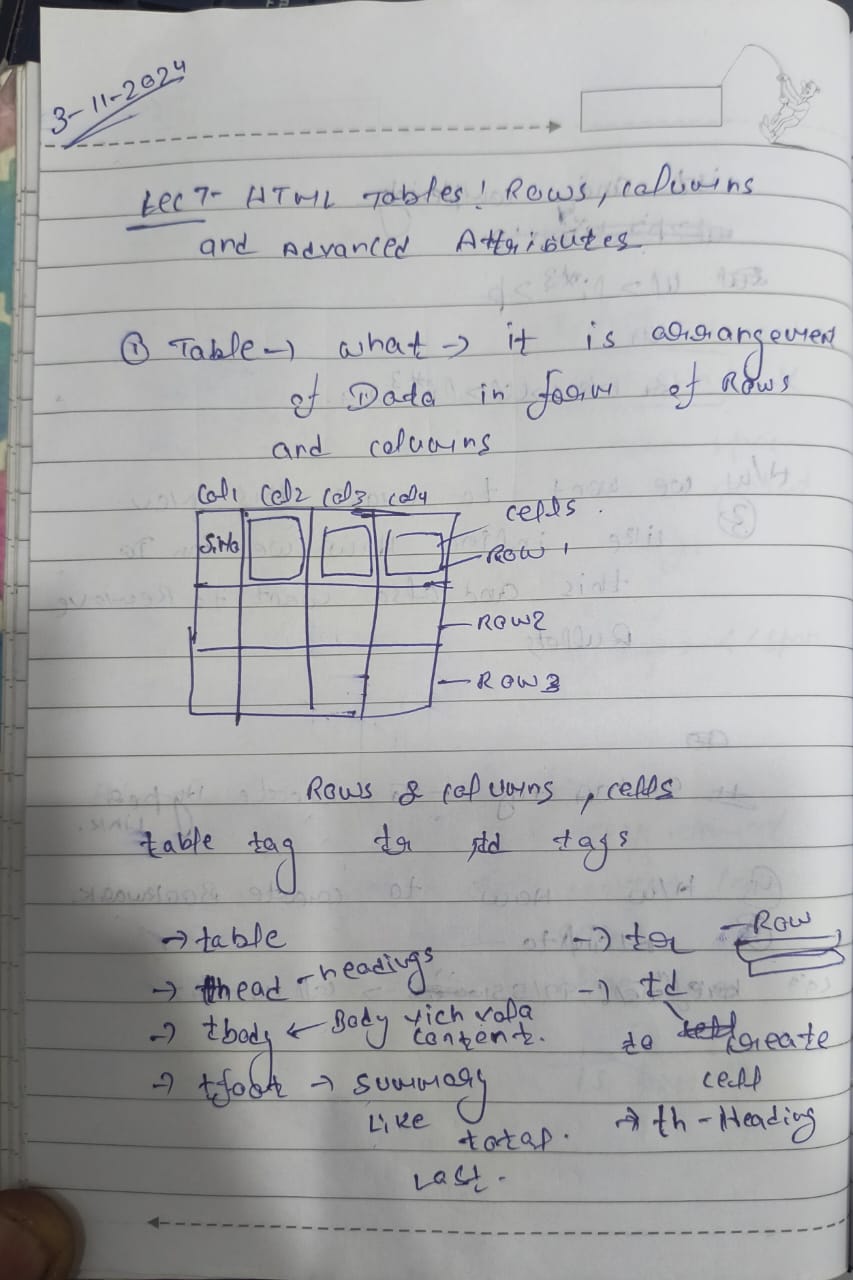 3-11-2024
Lec 7- HTML Tables! Rows, columns
and Advanced Attributes
① Table → what → it is arrangement
of Data in form of Rows
and columns
Col1 Col2 Col3 Col4
cells.
S.No
Row 1
Row2
Row 3
Rows & columns, cells
table tag tr td tags
→ table
→ thead - headings
→ tbody ← Body content.
→ tfoot → summary
Like total.
Last.
→ tr - Row
→ td
to create
cell
→ th - Heading